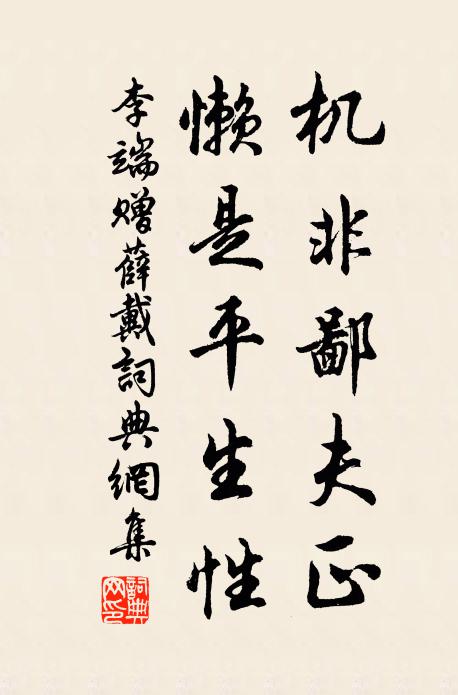 机非鄙夫正
懒是平生性
李端贈薛戴詞典網集
詞典网印